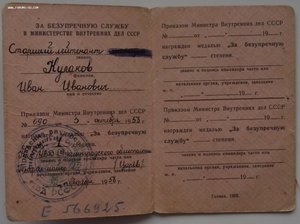 ЗА БЕЗУПРЕЧНУЮ СЛУЖБУ
В МИНИСТЕРСТВЕ ВНУТРЕННИХ ДЕЛ СССР
Старший лейтенант
звание
Кулаков
фамилия
Иван Иванович
имя и отчество
Приказом Министра Внутренних дел СССР
№ 690 5 октября 1958
награжден медалью „За безупречную
службу“ степени.
1958 г.
Е 566925
Приказом Министра Внутренних дел СССР
№ от 19 г.
награжден медалью „За безупречную
службу“ степени.
звание и подпись командира части или
начальника органа, учреждения, заведения
19 г.
Приказом Министра Внутренних дел СССР
№ от 19 г.
награжден медалью „За безупречную
службу“ степени.
звание и подпись командира части или
начальника органа, учреждения, заведения
19 г.
Гознак. 1958.